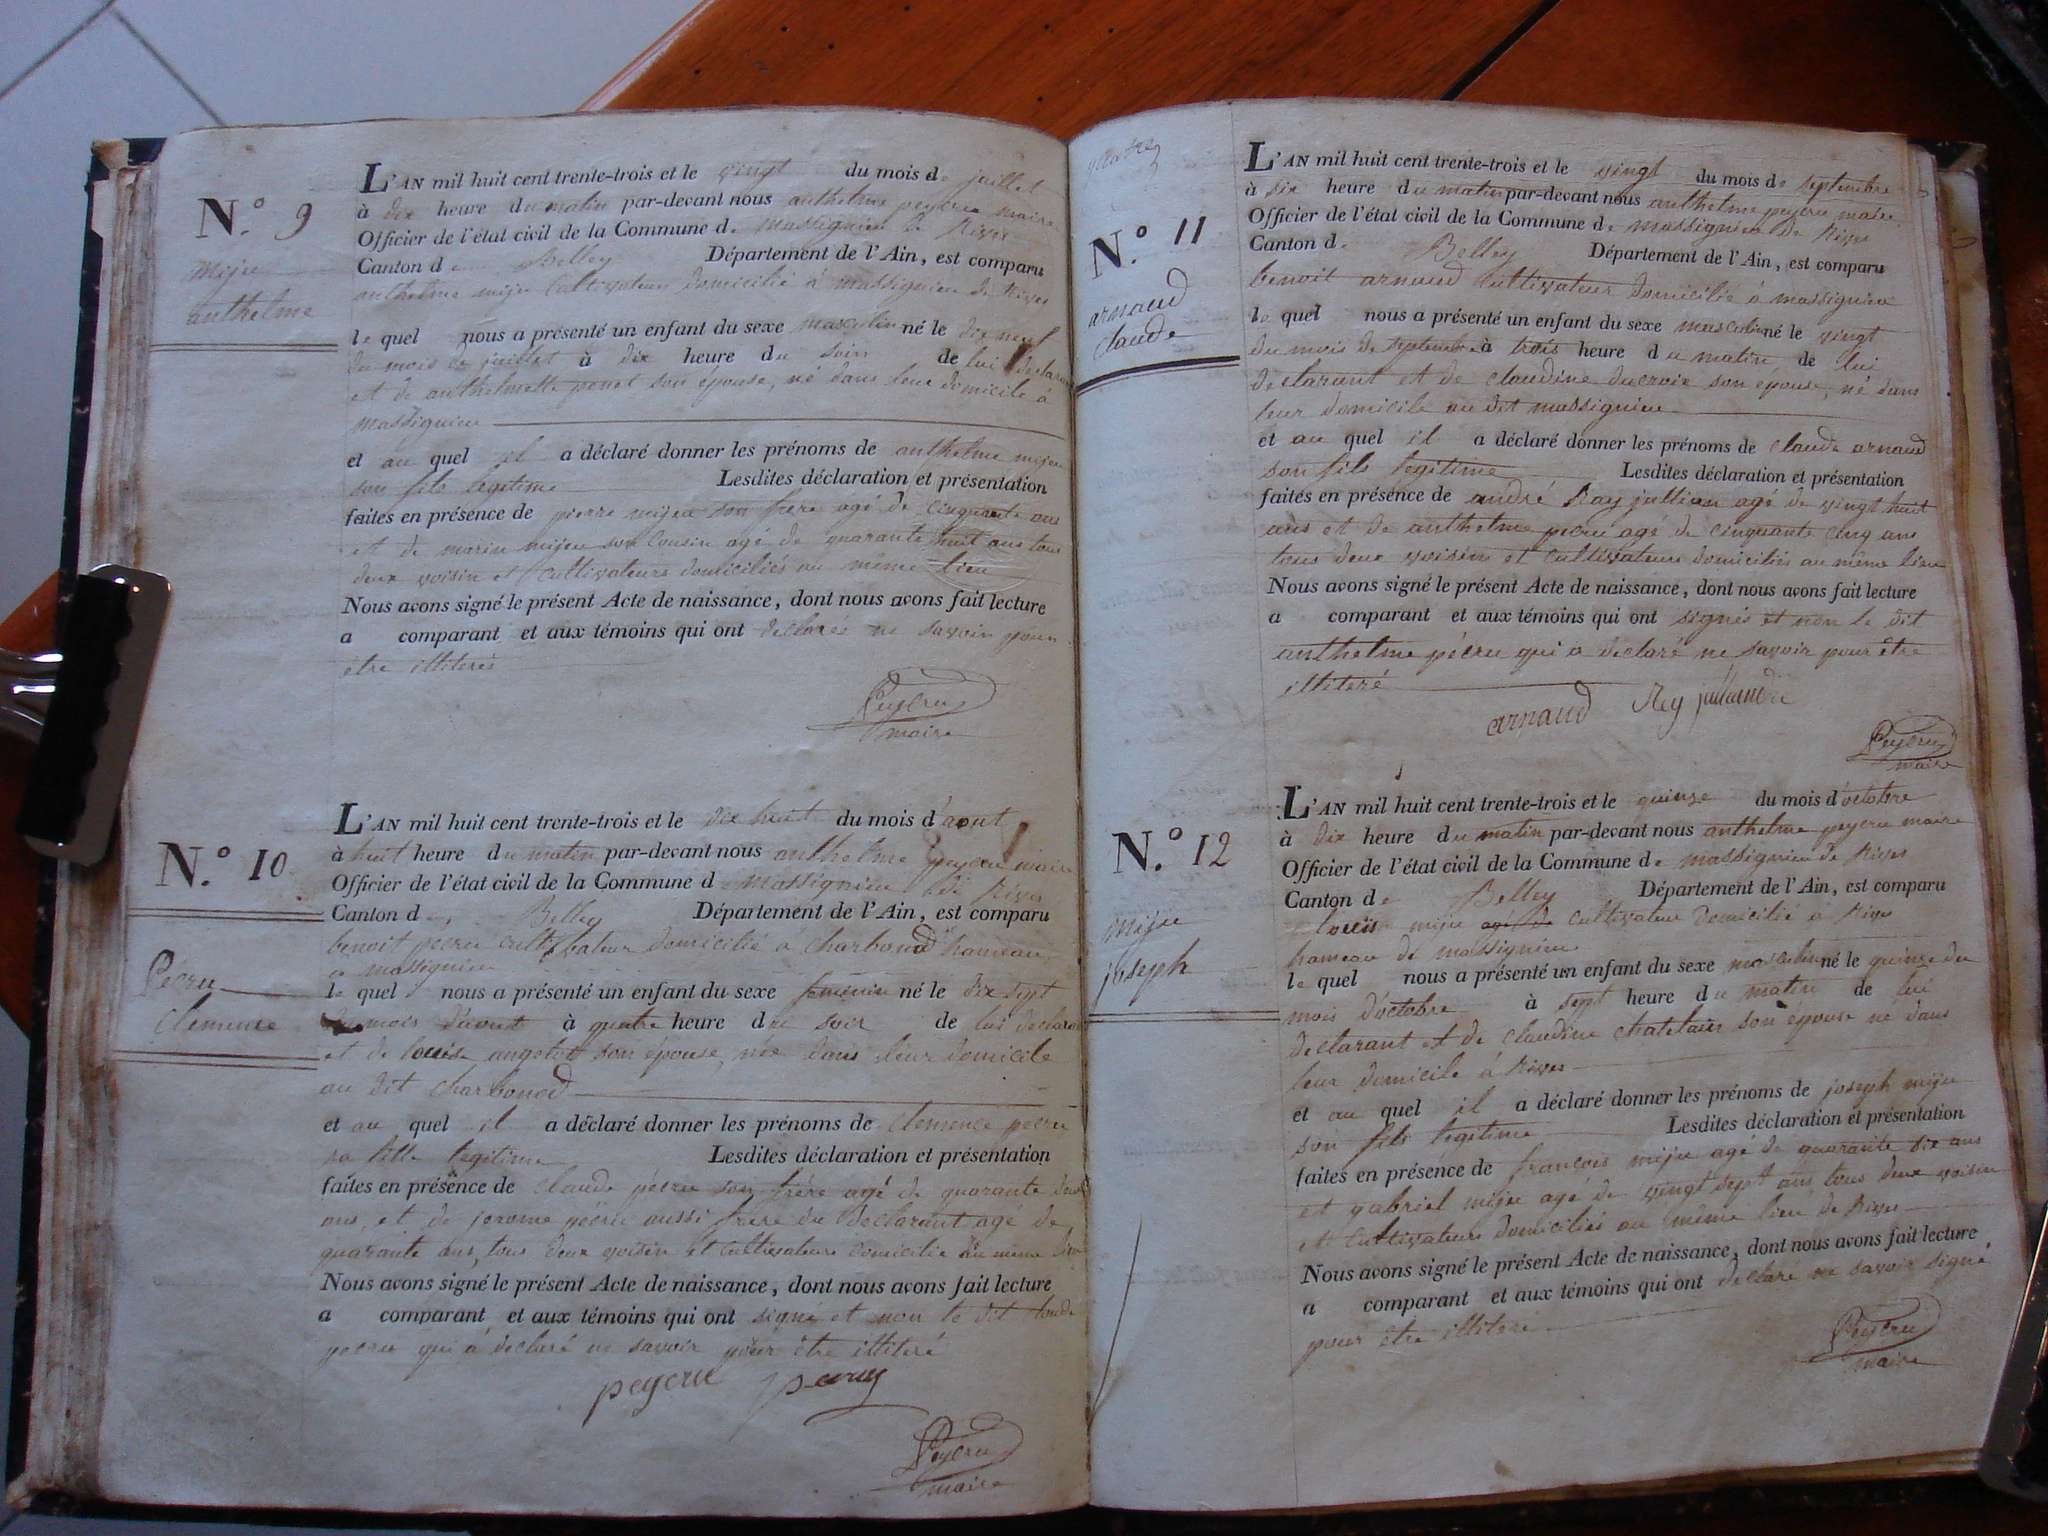 N.° 9
miju
anthelme
L'AN mil huit cent trente-trois et le vingt du mois de juillet
à dix heure du matin par-devant nous anthelme peycru maire
Officier de l'état civil de la Commune de massignieu de Rives
Canton de Belley Département de l'Ain, est comparu
anthelme miju Cultivateur domicilié à massignieu de Rives
le quel nous a présenté un enfant du sexe masculin né le dix neuf
du mois de juillet à dix heure du soir de lui declarant
et de anthelmette son épouse, né dans leur domicile à
massignieu
et au quel il a déclaré donner les prénoms de anthelme mijeu
son fils legitime Lesdites déclaration et présentation
faites en présence de pierre mijeu son frere agé de cinquante ans
et de marin mijeu son Cousin agé de quarante huit ans tous
deux voisin et Cultivateurs domiciliés au même lieu
Nous avons signé le présent Acte de naissance, dont nous avons fait lecture
a comparant et aux témoins qui ont declarés ne savoir pour
être illiterés
Peycru
maire
N.° 10
Pécru
Clemence
L'AN mil huit cent trente-trois et le dix huit du mois d'aout
à huit heure du matin par-devant nous anthelme peycru maire
Officier de l'état civil de la Commune d massignieu de Rives
Canton de Belley Département de l'Ain, est comparu
benoit pecru cultivateur domicilié à Charbonod hameau
massignieu
le quel nous a présenté un enfant du sexe feminin né le dix sept
du mois d'aout à quatre heure du soir de lui declarant
et de louise angelot son épouse, née dans leur domicile
au dit charbonod
et au quel il a déclaré donner les prénoms de clemence pecru
sa fille legitime Lesdites déclaration et présentation
faites en présence de claude pécru son frère agé de quarante
ans, et de jerome pécru aussi frere du declarant agé de
quarante ans, tous deux voisin et cultivateurs domicilie au même lieu
Nous avons signé le présent Acte de naissance, dont nous avons fait lecture
a comparant et aux témoins qui ont signé et non le dit Claude
pecru qui a declaré ne savoir pour être illiteré
peycru
Peycru
maire
quatre
N.° 11
arnaud
claude
L'AN mil huit cent trente-trois et le vingt du mois de septembre
à six heure du matin par-devant nous anthelme peycru maire
Officier de l'état civil de la Commune de massignieu de Rives
Canton de Belley Département de l'Ain, est comparu
benoit arnaud Cultivateur domicilié à massignieu
le quel nous a présenté un enfant du sexe masculin né le vingt
du mois de septembre à trois heure du matin de lui
declarant et de claudine ducroix son épouse, né dans
leur domicile au dit massignieu
et au quel il a déclaré donner les prénoms de claude arnaud
son fils legitime Lesdites déclaration et présentation
faites en présence de andré Ray jullian agé de vingt huit
ans et de anthelme pecru agé de cinquante cinq ans
tous deux voisins et Cultivateurs domiciliés au même lieu
Nous avons signé le présent Acte de naissance, dont nous avons fait lecture
a comparant et aux témoins qui ont signés et non le dit
anthelme pécru qui a declaré ne savoir pour être
illiteré
arnaud Rey
Peycru
maire
N.° 12
miju
joseph
L'AN mil huit cent trente-trois et le quinze du mois d'octobre
à dix heure du matin par-devant nous anthelme peycru maire
Officier de l'état civil de la Commune de massignieu de Rives
Canton de Belley Département de l'Ain, est comparu
louis miju agé de cultivateur domicilié à Rives
hameau de massignieu
le quel nous a présenté un enfant du sexe masculin né le quinze du
mois d'octobre à sept heure du matin de lui
declarant et de claudine chatelain son épouse né dans
leur domicile à Rives
et au quel il a déclaré donner les prénoms de joseph miju
son fils legitime Lesdites déclaration et présentation
faites en présence de françois miju agé de quarante six ans
et gabriel mijeu agé de vingt sept ans tous deux voisin
et Cultivateurs domiciliés au même lieu de Rives
Nous avons signé le présent Acte de naissance, dont nous avons fait lecture
a comparant et aux témoins qui ont declaré ne savoir signé
pour être illiteré
Peycru
maire